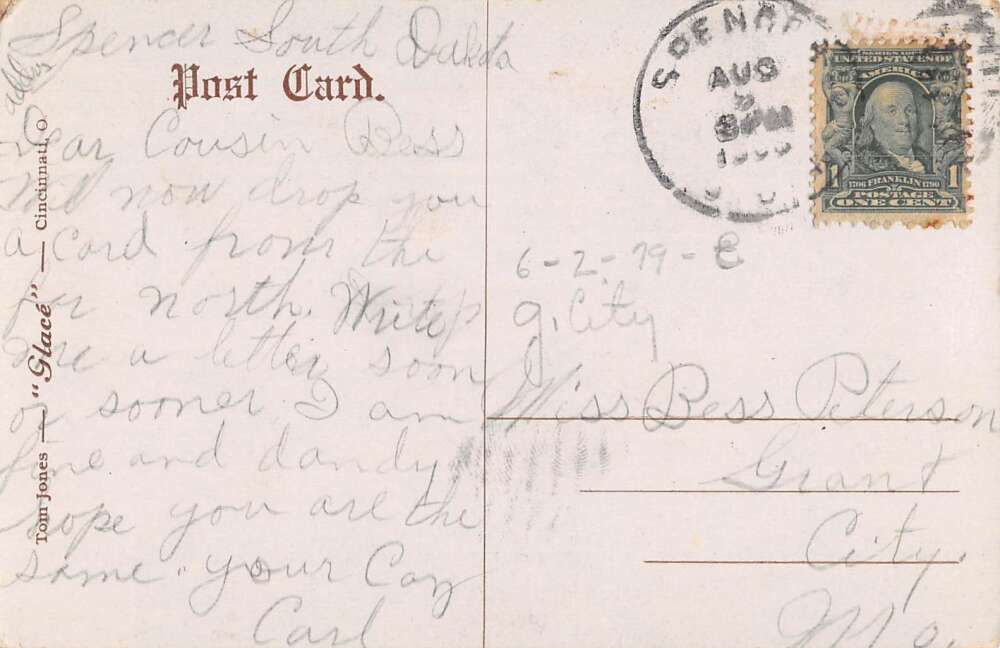 Spencer South Dakota
Post Card.
Dear Cousin Bess
Will now drop you
a card from the
far north. Write
me a letter soon
or sooner. I am
fine and dandy
hope you are the
same. your Coz
Carl
Tom Jones — "Glacé" — Cincinnati, O
AUG
8PM
SERIES 1902
UNITED STATES OF
AMERICA
1 1706 FRANKLIN 1790 1
POSTAGE
ONE CENT
6-2-79-E
G. City
Miss Bess Peterson
Grant
City.
Mo.